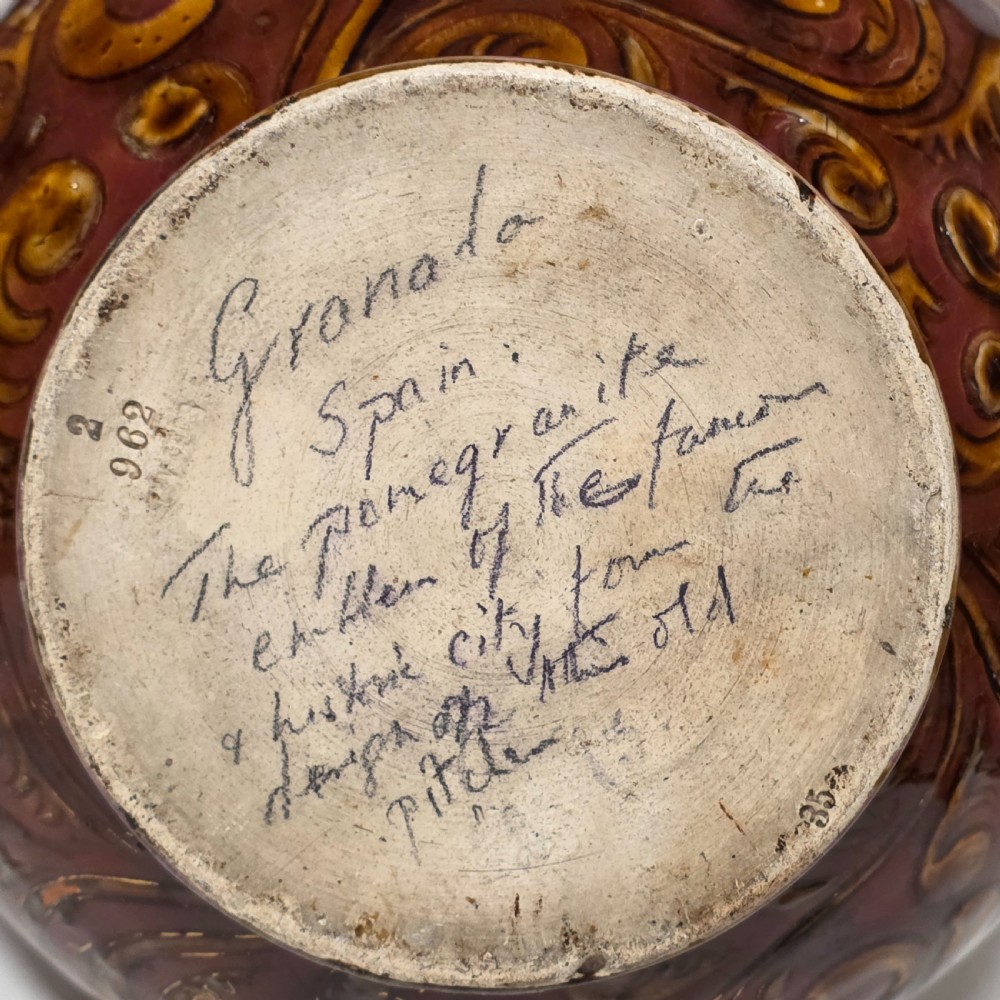 Granada
Spain:
The pomegranite
emblem of the famous
& historic city form the
design on this old
pitcher
2
962
35